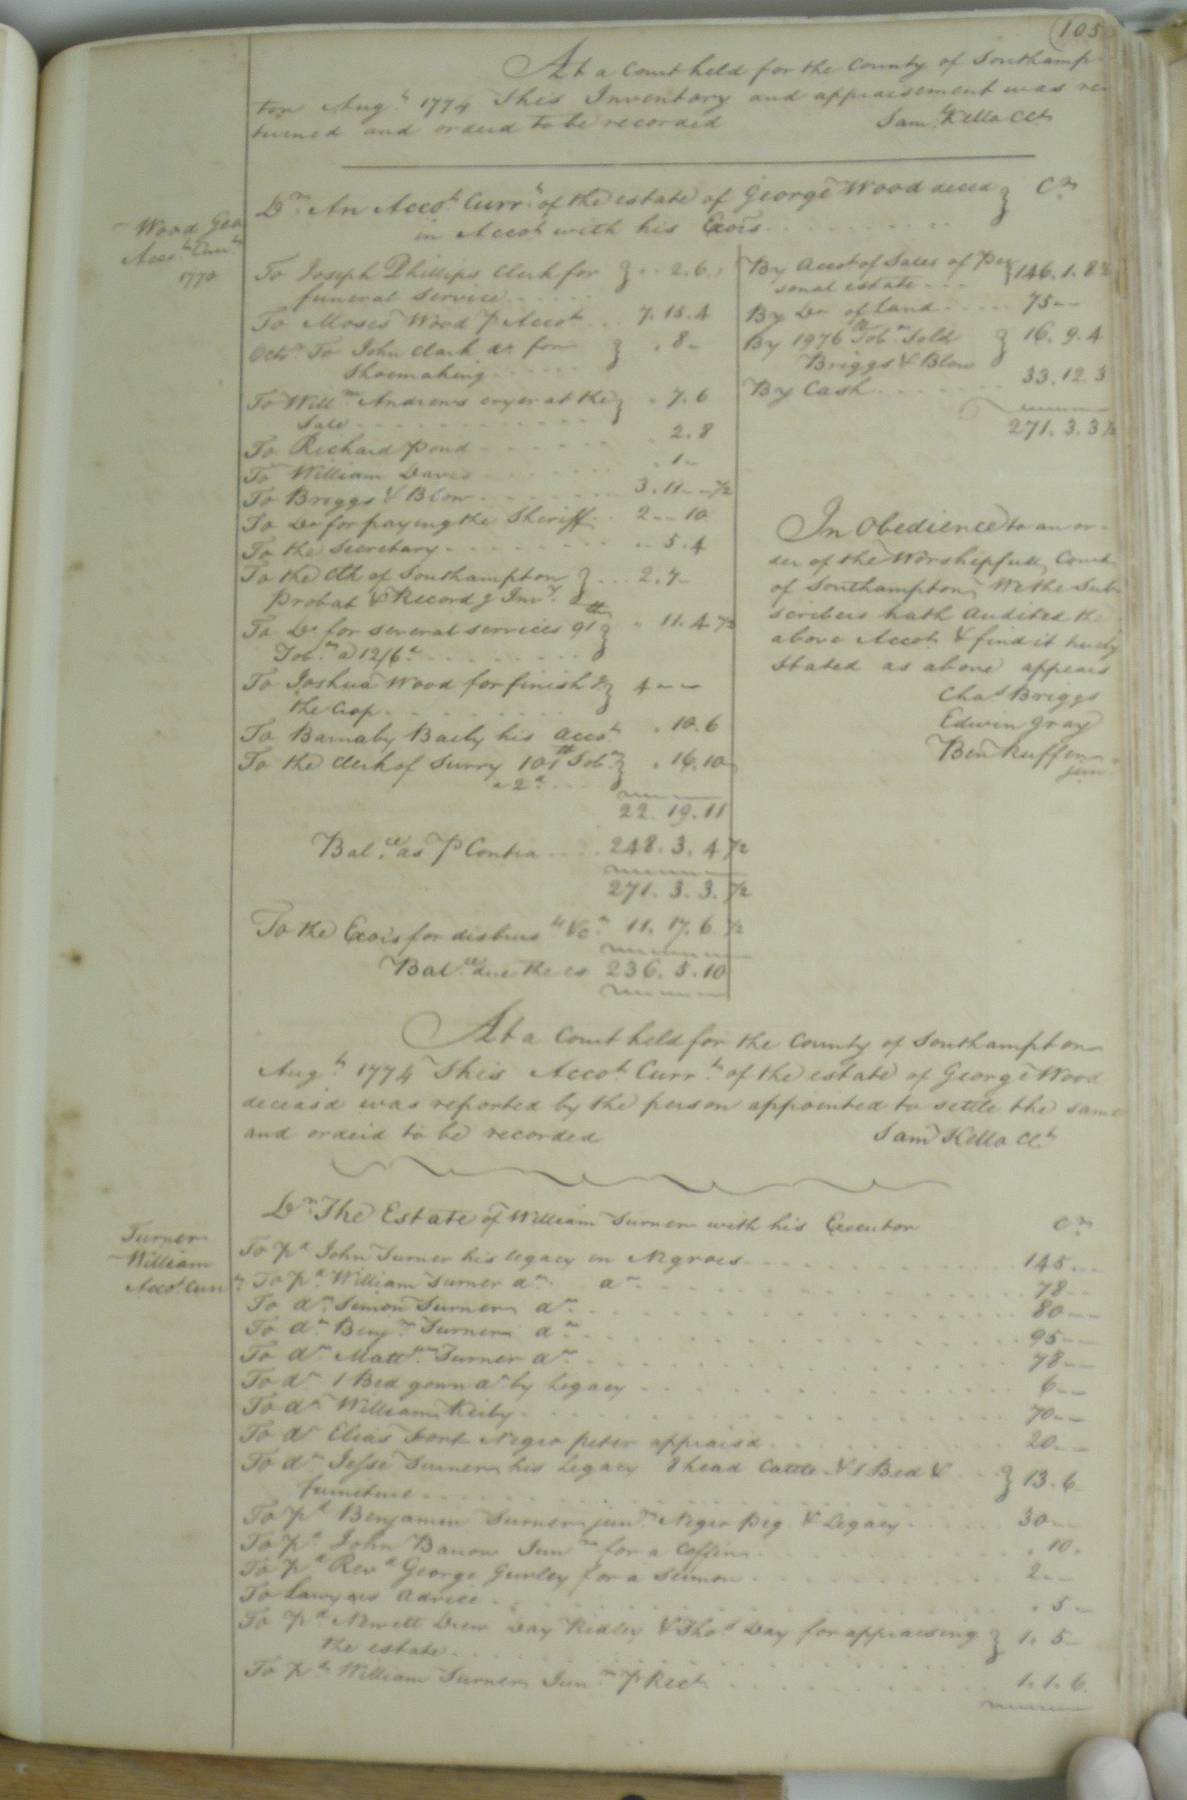 105
At a Court held for the County of Southamp-
ton Augt. 1774 This Inventory and appraisement was re
turned and orderd to be recorded Saml. Kello Clk
Wood Geo
Acco.t Curr.t
1770
Dr. An Acco.t Curr.t of the estate of George Wood deced } Cr.
in Accot with his Exors
To Joseph Phillips Clerk for } .. 2.6.
funeral Service
To Moses Wood P Accot ... 7.15.4
Octo. To John Clark do. for } . 8 -
Shoemaking
To Will.m Andrews cryer at the } . 7.6
Sale
To Richard Pond . 2.8
To William Davis . 1 -
To Briggs & Blow 3.11 - - 1/2
To Do for paying the Sheriff .. 2 - - 10
To the Secretary .. 5.4
To the Clk of Southampton } ... 2.7 -
Probat & Record g Inv.y
To Do for several services 91 lb } . 11.4 1/2
Tob.o @ 12/6
To Joshua Wood for finish g } 4 - -
the Crop
To Barnaby Baily his Accot . 10.6
To the Clerk of Surry 101 lb Tob.o } . 16.10
a 2d
22.19.11
Bal.ce as P Contra 248.3.4 1/2
271.3.3. 1/2
To the Exors for disburs.ts &c. 11.17.6 1/2
Bal.ce due the es 236.5.10
By Accot of Sales of Per } 146.1.8 1/2
sonal estate
By Do of Land 75 - -
By 1976 lb Tobo. Sold } 16.9.4
Briggs & Blow
By Cash 33.12.3
271.3.3 1/2
In Obedience to an or-
der of the Worshipfull Court
of Southampton We the Sub
scribers hath Audited the
above Accot. & find it truly
Stated as above appears
Chas Briggs
Edwin Gray
Ben Ruffin
junr.
At a Court held for the County of Southampton
Augt. 1774 This Accot Curr.t of the estate of George Wood
deceasd was reported by the person appointed to settle the same
and orderd to be recorded Saml Kello Clk
Turner
William
Accot Curr.t
Dr. The Estate of William Turner with his Executor Cr.
To pd John Turner his legacy in Negroes 145 - -
To pd. William Turner do. do. 78 - -
To do. Simon Turner do. 80 - -
To do. Benj.n Turner do. 95 - -
To do. Matt.w Turner do. 78 - -
To do 1 Bed gown do by Legacy 6 - -
To do William Kirby 70 - -
To do Elias Fort Negro peter appraisd 20 - -
To do Jesse Turner his Legacy 8 head Cattle & 1 Bed & } 13.6 -
furneture
To pd Benjamin Turner junr. Negro Peg & Legacy 30 - -
To pd John Barrow Junr for a Coffin . 10 .
To pd Revd George Gurley for a Sermon 2 - -
To Lawyers advice . 5 -
To pd Newitt Drew Day Ridley & Thos Day for appraising } 1.5 -
the estate
To pd William Turner Junr. P Rect 1.1.6